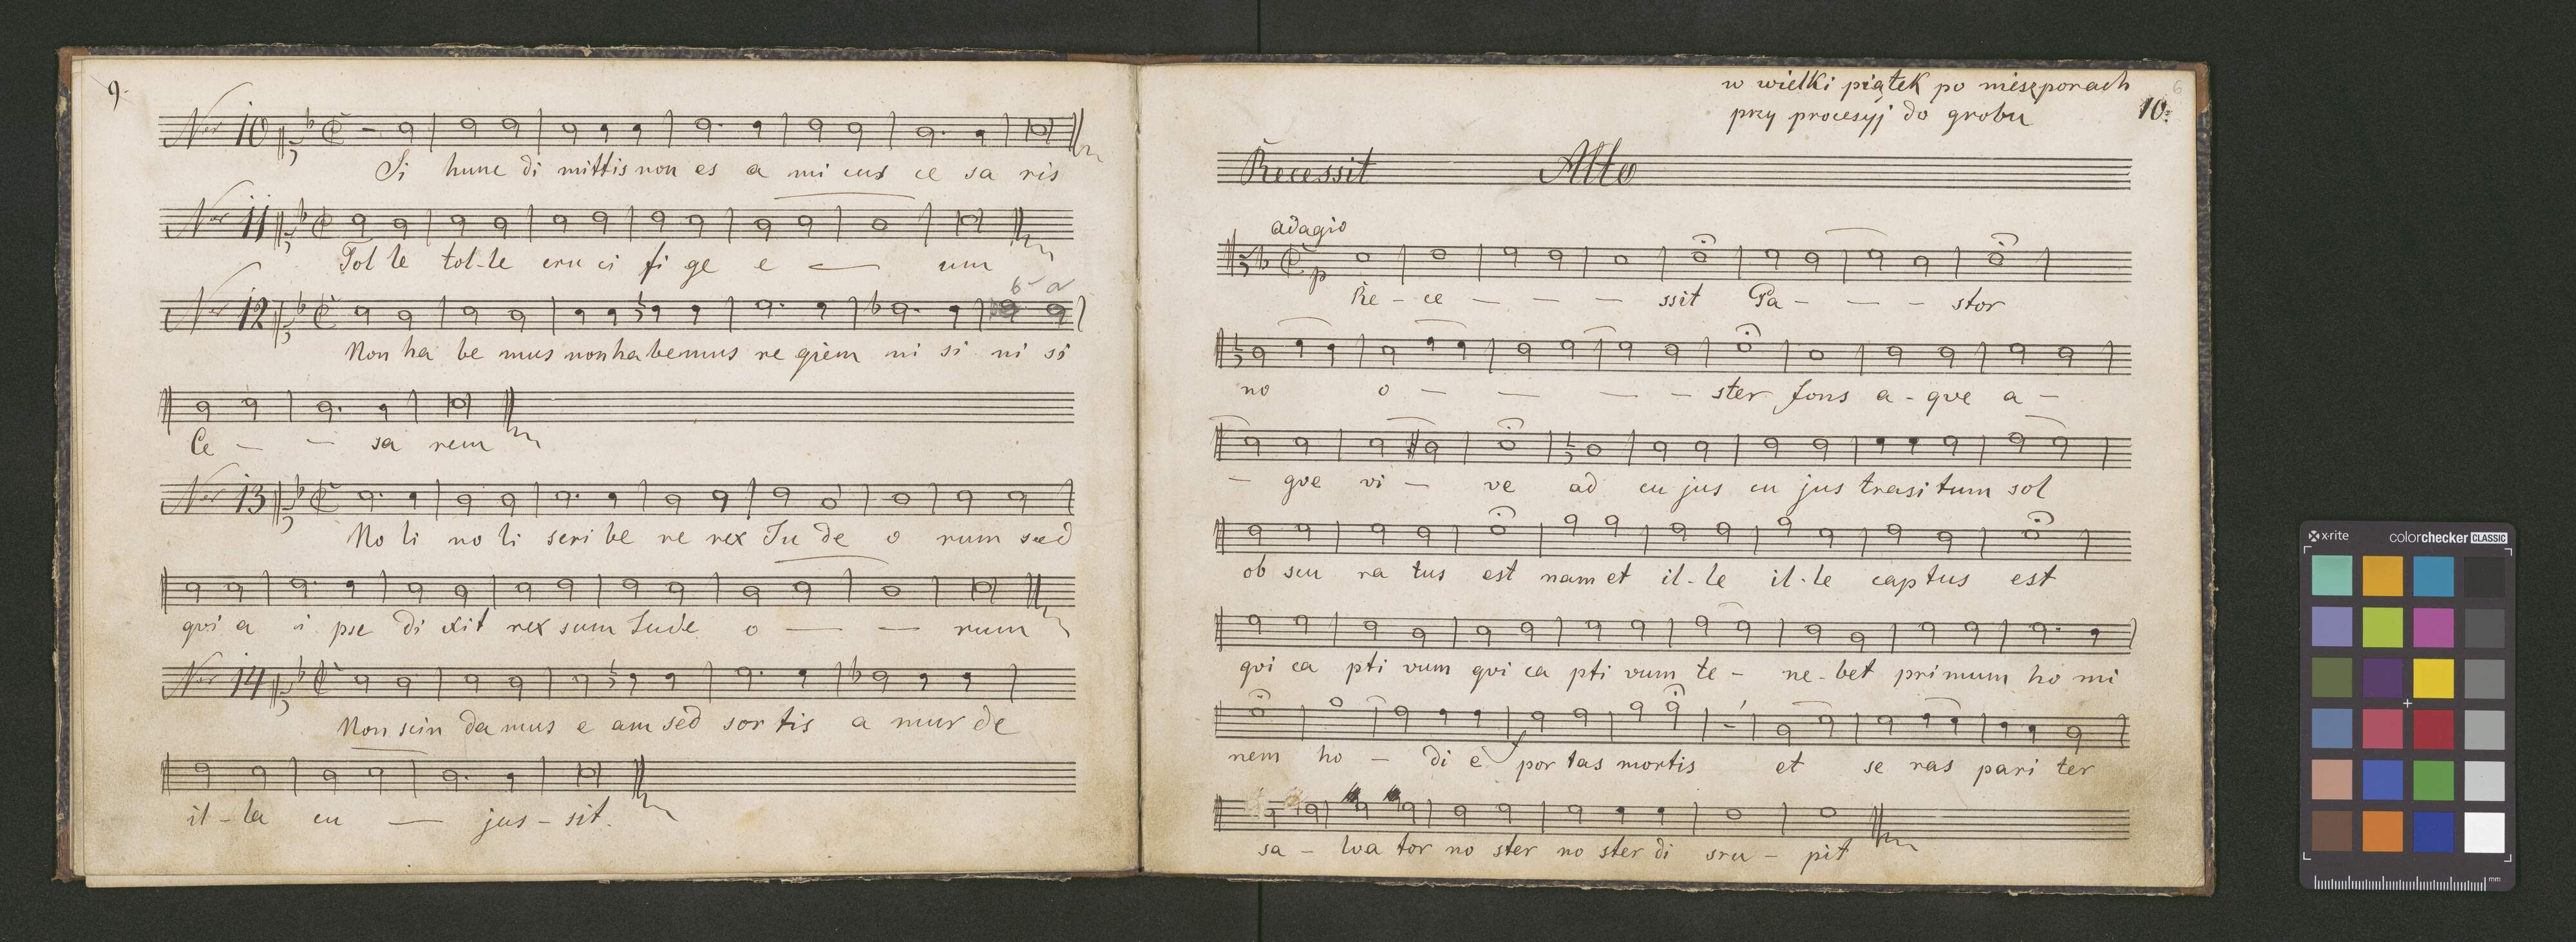 9.
Nro 10
Si hunc di mittis non es a mi cus ce sa ris
Nro 11
Tol le tol-le cru ci fi ge e — um
Nro 12
6 a
Non ha be mus non ha bemus re giem ni si ni si
Ce — — sa rem
Nro 13
No li no li scri be re rex Ju de o rum sed
qvi a i pse di xit rex sum Jude o — — rum
Nro 14
Non scin da mus e am sed sor tis a mur de
il-la cu — jus-sit.
w wielki piątek po nieszporach
przy procesyj do grobu
10:
6
Recessit Alto
adagio
p
Re-ce — — — ssit Pa- — - stor
no o — — — - ster fons a-qve a-
- qve vi - ve ad cu jus cu jus trasi tum sol
ob scu ra tus est nam et il-le il-le captus est
qvi ca pti vum qvi ca pti vum te - ne-bet primum ho mi
nem ho - di e portas mortis et se ras pari ter
sa - lva tor no ster no ster di sru - pit
x-rite colorchecker CLASSIC
mm